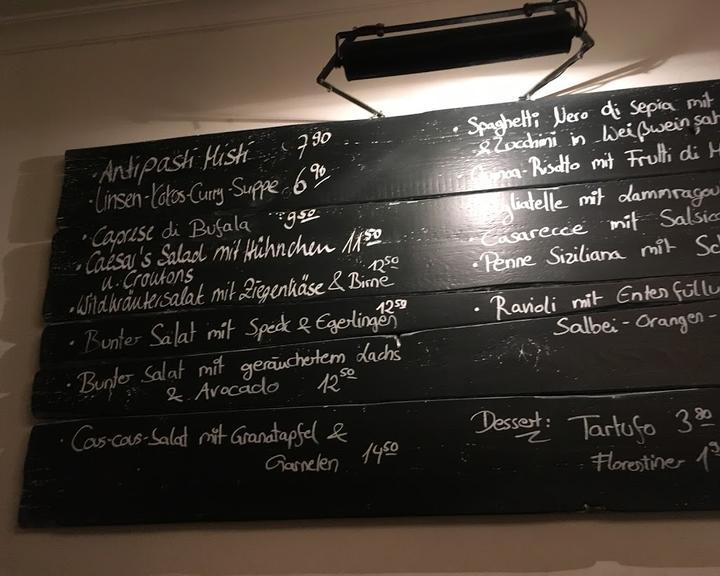 · Antipasti Misti 7 90
· Linsen-Kokos-Curry-Suppe 6 90
· Caprese di Bufala 9 50
· Caesar's Salad mit Hühnchen 11 50
u. Croutons
· Wildkräutersalat mit Ziegenkäse & Birne 12 50
· Bunter Salat mit Speck & Egerlingen 12 50
· Bunter Salat mit geräuchertem Lachs
& Avocado 12 50
· Cous-cous-Salat mit Granatapfel &
Garnelen 14 50
· Spaghetti Nero di Sepia mit
& Zucchini in Weißwein
-Risotto mit Frutti di
mit Lammragou
· Casarecce mit Salsic
· Penne Siziliana mit
· Ravioli mit Entenfüllu
Salbei-Orangen-
Dessert: Tartufo 3 80
Florentiner